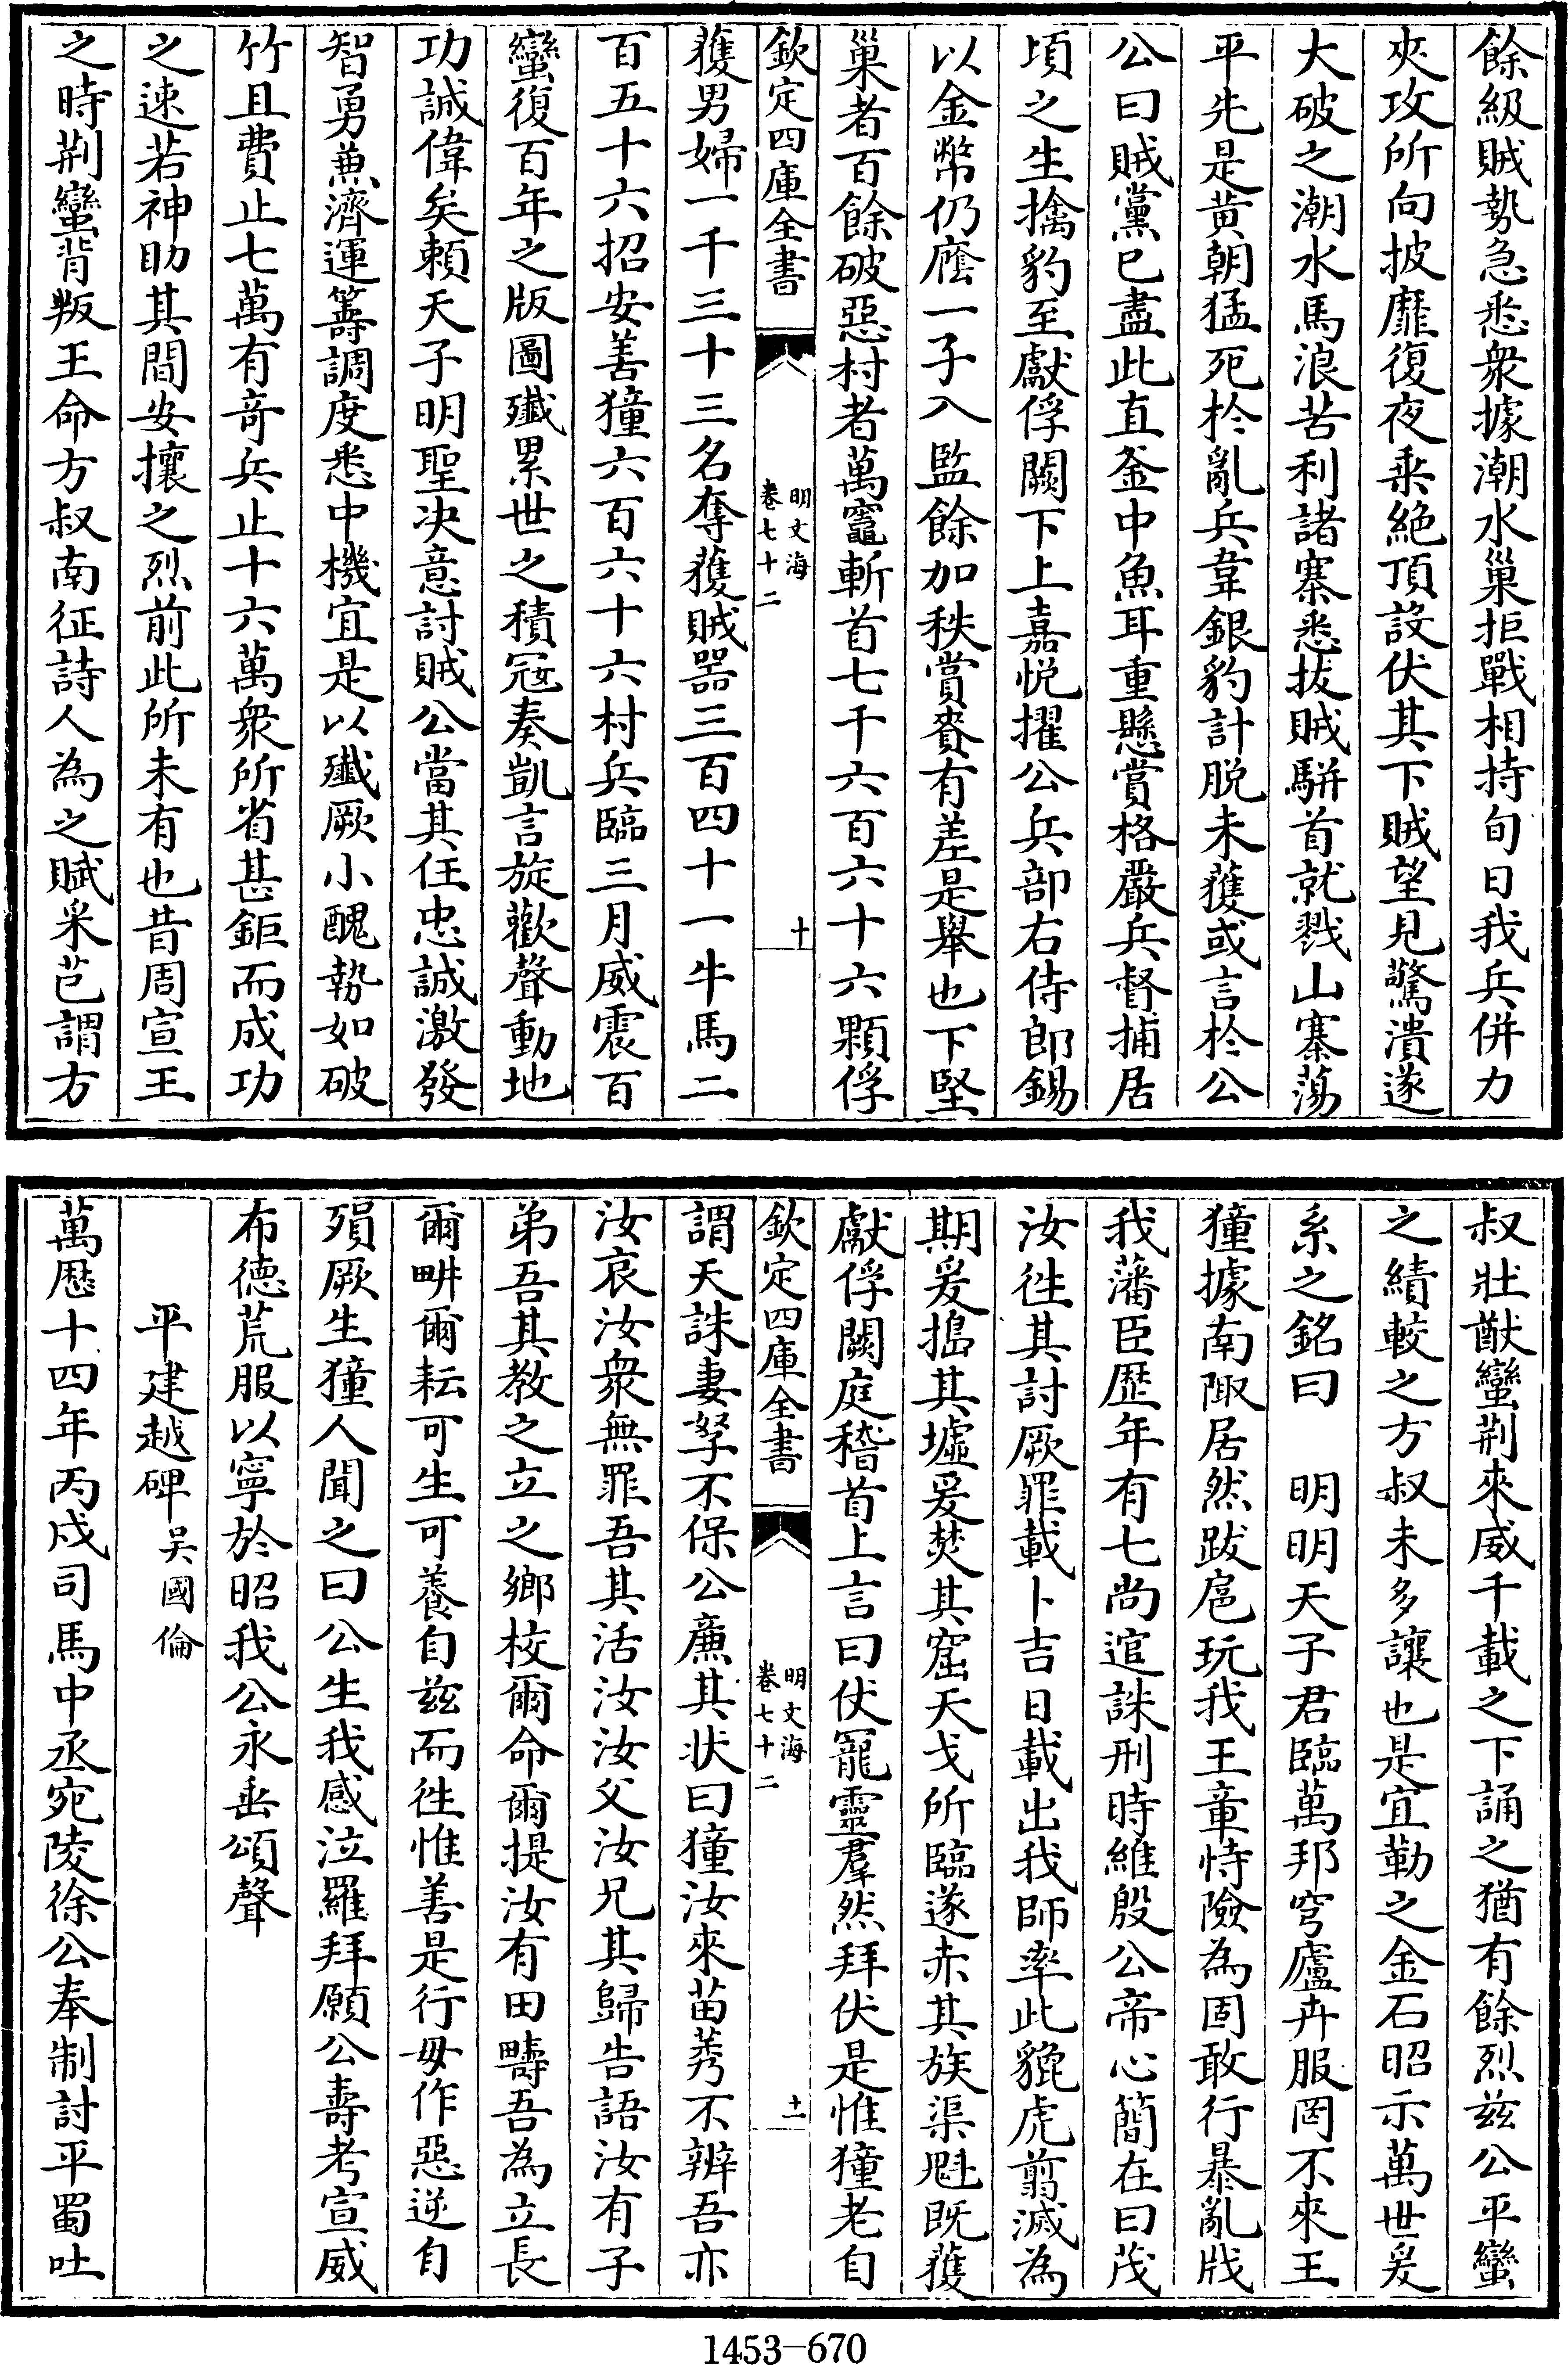 餘級賊勢急悉衆據潮水巢拒戰相持旬日我兵併力
夾攻所向披靡復夜乘絶頂設伏其下賊望見驚潰遂
大破之潮水馬浪苦利諸寨悉拔賊駢首就戮山寨蕩
平先是黄朝猛死於亂兵韋銀豹計脱未獲或言於公
公曰賊黨已盡此直釜中魚耳重懸賞格嚴兵督捕居
頃之生擒豹至獻俘闕下上嘉悦擢公兵部右侍郎錫
以金幣仍廕一子入監餘加秩賞賚有差是舉也下堅
巢者百餘破惡村者萬竈斬首七千六百六十六顆俘
欽定四庫全書
明文海
卷七十二
十
獲男婦一千三十三名奪獲賊器三百四十一牛馬二
百五十六招安善獞六百六十六村兵臨三月威震百
蠻復百年之版圖殲累世之積冦奏凱言旋歡聲動地
功誠偉矣頼天子明聖决意討賊公當其任忠誠激發
智勇兼濟運籌調度悉中機宜是以殲厥小醜勢如破
竹且費止七萬有竒兵止十六萬衆所省甚鉅而成功
之速若神助其間安攘之烈前此所未有也昔周宣王
之時荆蠻背叛王命方叔南征詩人為之賦采芑謂方
叔壯猷蠻荆來威千載之下誦之猶有餘烈兹公平蠻
之績較之方叔未多讓也是宜勒之金石昭示萬世爰
系之銘曰　明明天子君臨萬邦穹廬卉服罔不來王
獞據南陬居然跋扈玩我王章恃險為固敢行暴亂戕
我藩臣歷年有七尚逭誅刑時維殷公帝心簡在曰茂
汝徃其討厥罪載卜吉日載出我師率此貔虎翦滅為
期爰搗其墟爰焚其窟天戈所臨遂赤其族渠魁既獲
獻俘闕庭稽首上言曰伏寵靈羣然拜伏是惟獞老自
欽定四庫全書
明文海
卷七十二
十一
謂天誅妻孥不保公廉其状曰獞汝來苗莠不辨吾亦
汝哀汝衆無罪吾其活汝汝父汝兄其歸告語汝有子
弟吾其教之立之鄉校爾命爾提汝有田疇吾為立長
爾畊爾耘可生可養自兹而徃惟善是行毋作惡逆自
殞厥生獞人聞之曰公生我感泣羅拜願公夀考宣威
布德荒服以寧於昭我公永垂頌聲
平建越碑　吳國倫
萬厯十四年丙戍司馬中丞宛陵徐公奉制討平蜀吐
1453—670